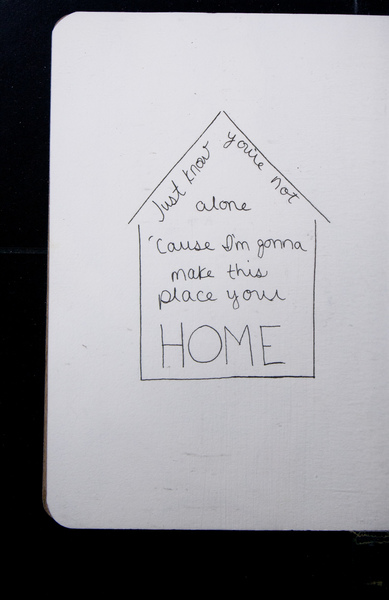 Just know you're not
alone
'Cause I'm gonna
make this
place your
HOME